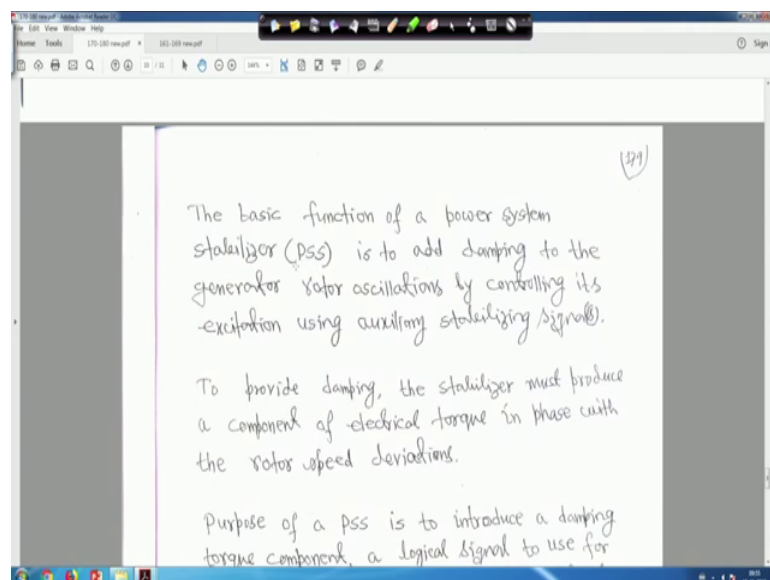 170-180 new.pdf - Adobe Acrobat Reader DC
File Edit View Window Help
Home Tools 170-180 new.pdf × 161-169 new.pdf
Sign
179
The basic function of a power system
stabilizer (PSS) is to add damping to the
generator rotor oscillations by controlling its
excitation using auxiliary stabilizing signal(s).
To provide damping, the stabilizer must produce
a component of electrical torque in phase with
the rotor speed deviations.
Purpose of a PSS is to introduce a damping
torque component, a logical signal to use for